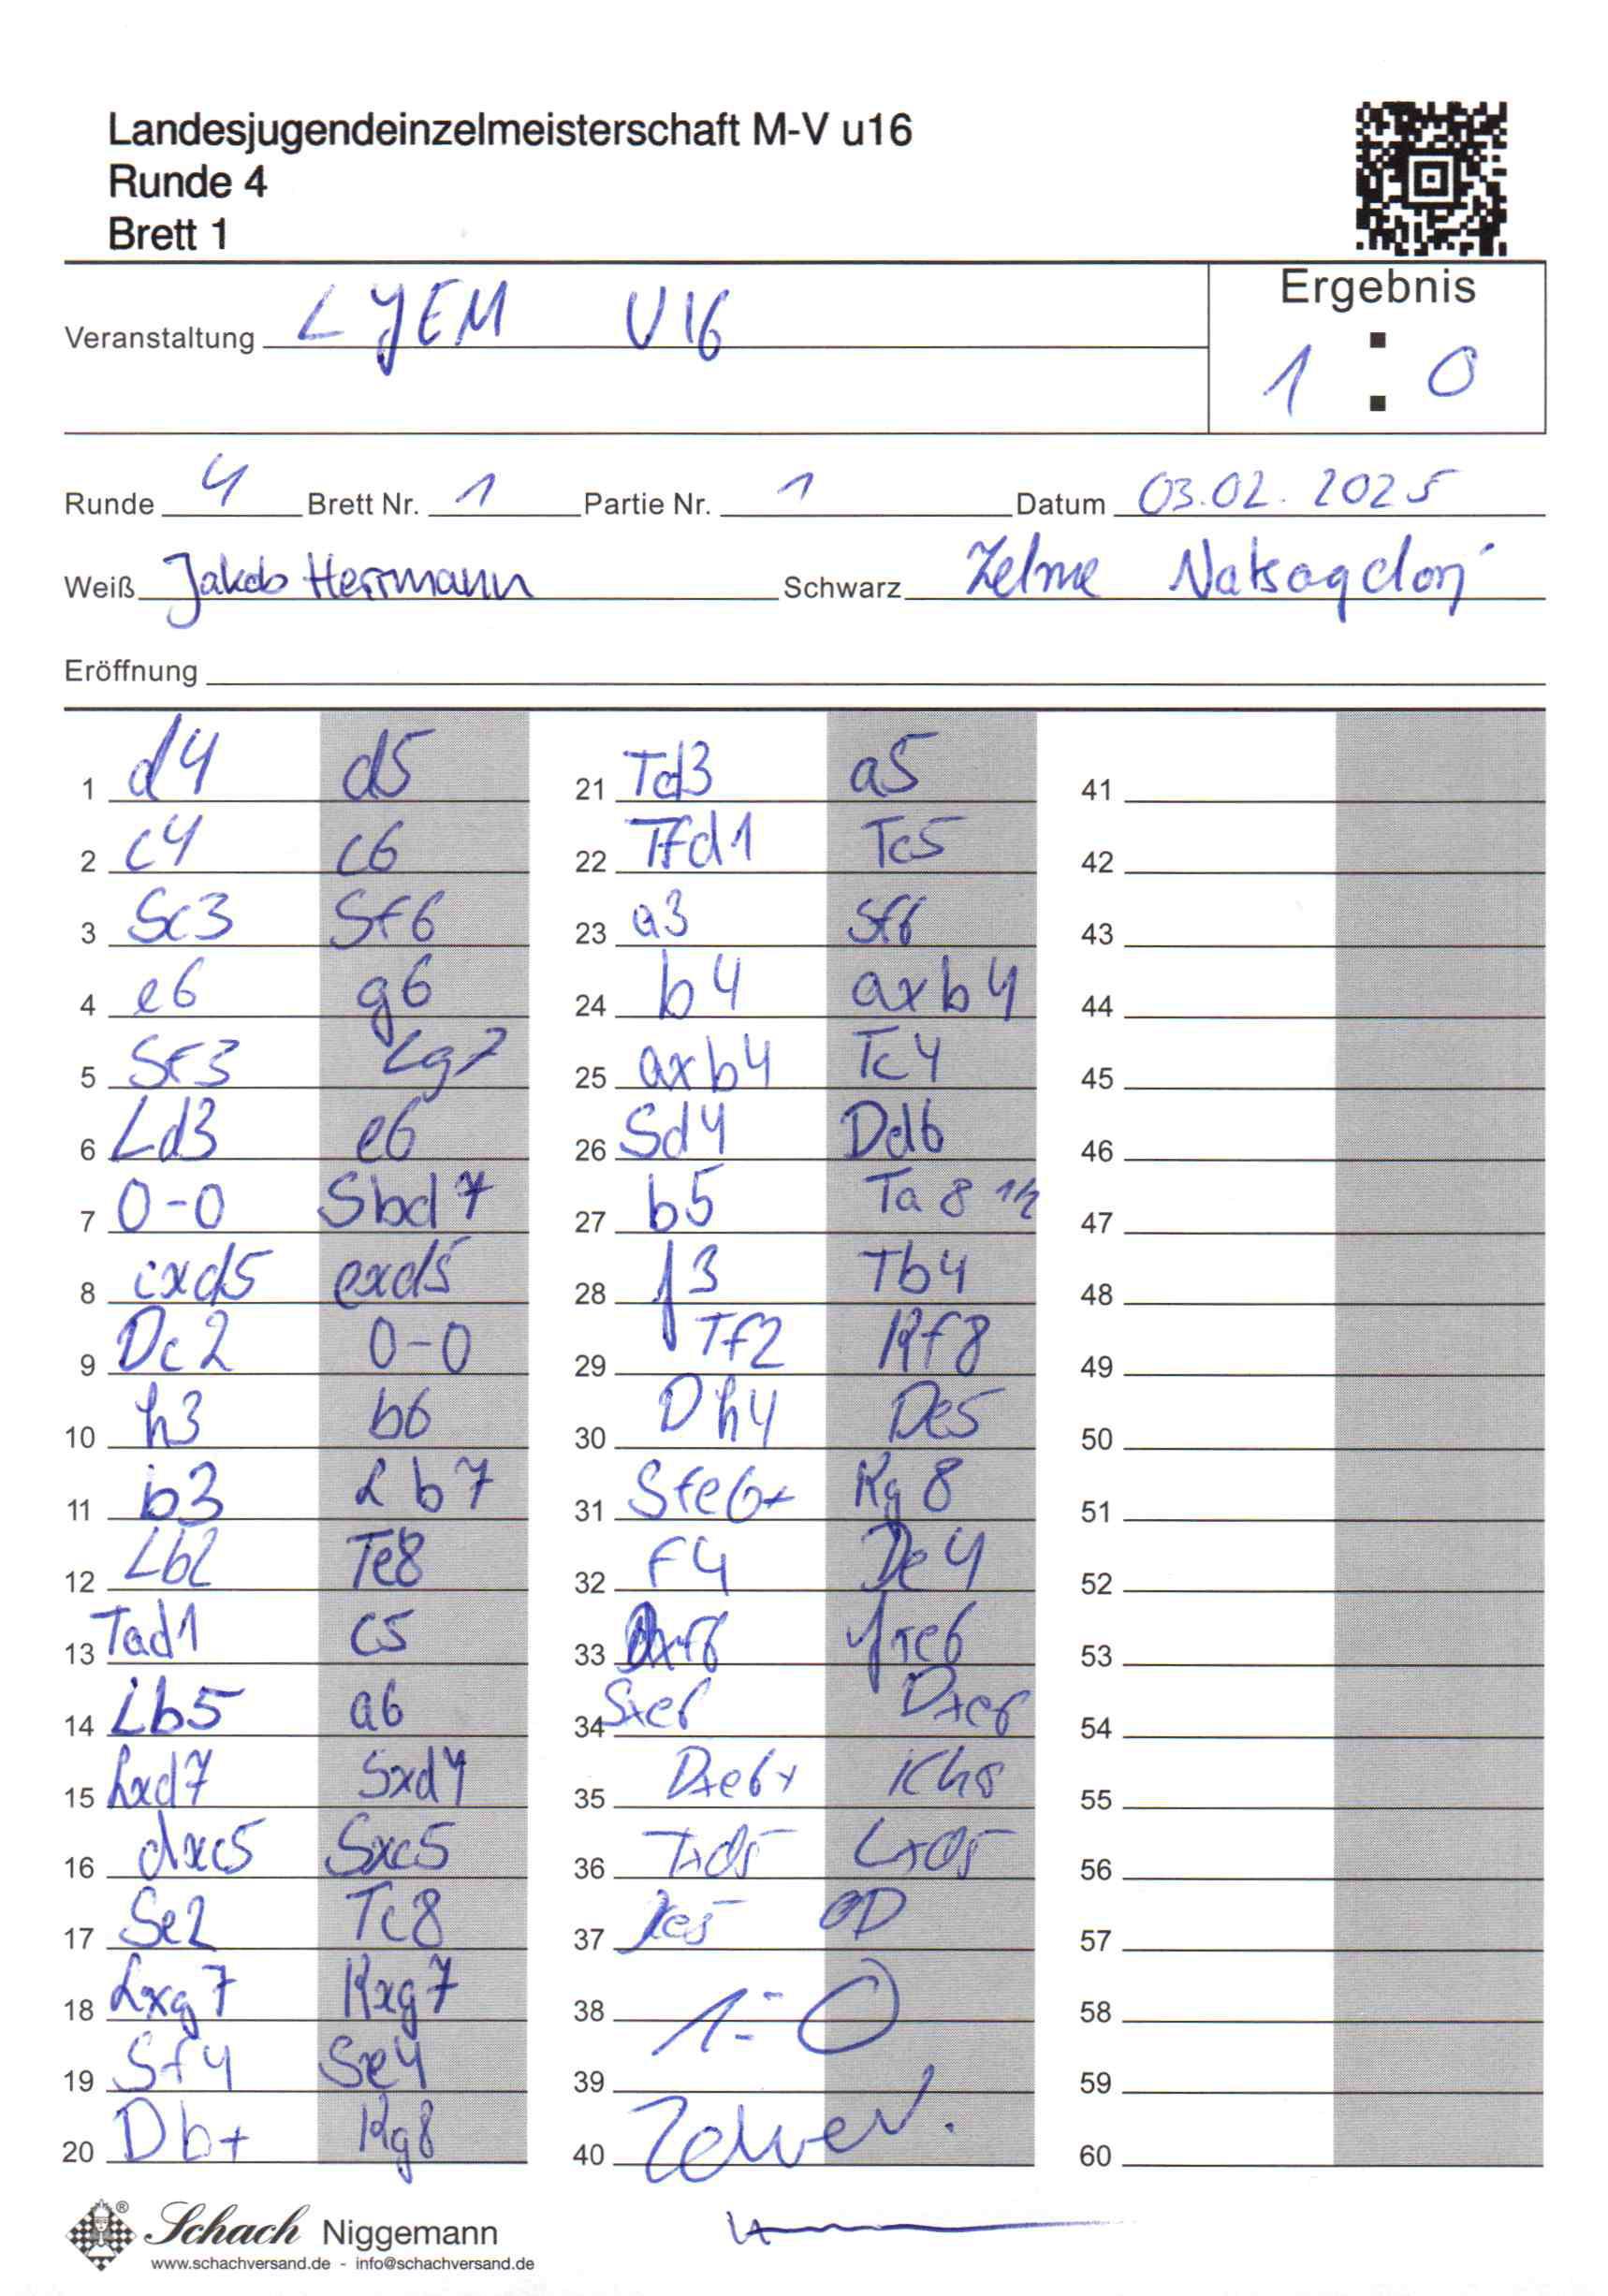 Landesjugendeinzelmeisterschaft M-V u16
Runde 4
Brett 1
Ergebnis
Veranstaltung LJEM U16
1 : 0
Runde 4 Brett Nr. 1 Partie Nr. 1 Datum 03.02.2025
Weiß Jakob Herrmann Schwarz Zelme Natsagdorj
Eröffnung
1 d4 d5 21 Td3 a5 41
2 c4 c6 22 Tfd1 Tc5 42
3 Sc3 Sf6 23 a3 Sf6 43
4 e6 g6 24 b4 axb4 44
5 Sf3 Lg7 25 axb4 Tc4 45
6 Ld3 e6 26 Sd4 Dd6 46
7 0-0 Sbd7 27 b5 Ta8 1/2 47
8 cxd5 exd5 28 f3 Tb4 48
9 Dc2 0-0 29 Tf2 Kf8 49
10 h3 b6 30 Dh4 De5 50
11 b3 Lb7 31 Sfe6+ Kg8 51
12 Lb2 Te8 32 f4 De4 52
13 Tad1 c5 33 Dxf6 fxe6 53
14 Lb5 a6 34 Sxe6 Dxe6 54
15 Lxd7 Sxd7 35 Dxe6+ Kh8 55
16 dxc5 Sxc5 36 Txd5 Lxd5 56
17 Se2 Tc8 37 De5 57
18 Lxg7 Kxg7 38 1-0 58
19 Sf4 Se4 39 59
20 Db+ Kg8 40 60
Schach Niggemann
www.schachversand.de - info@schachversand.de